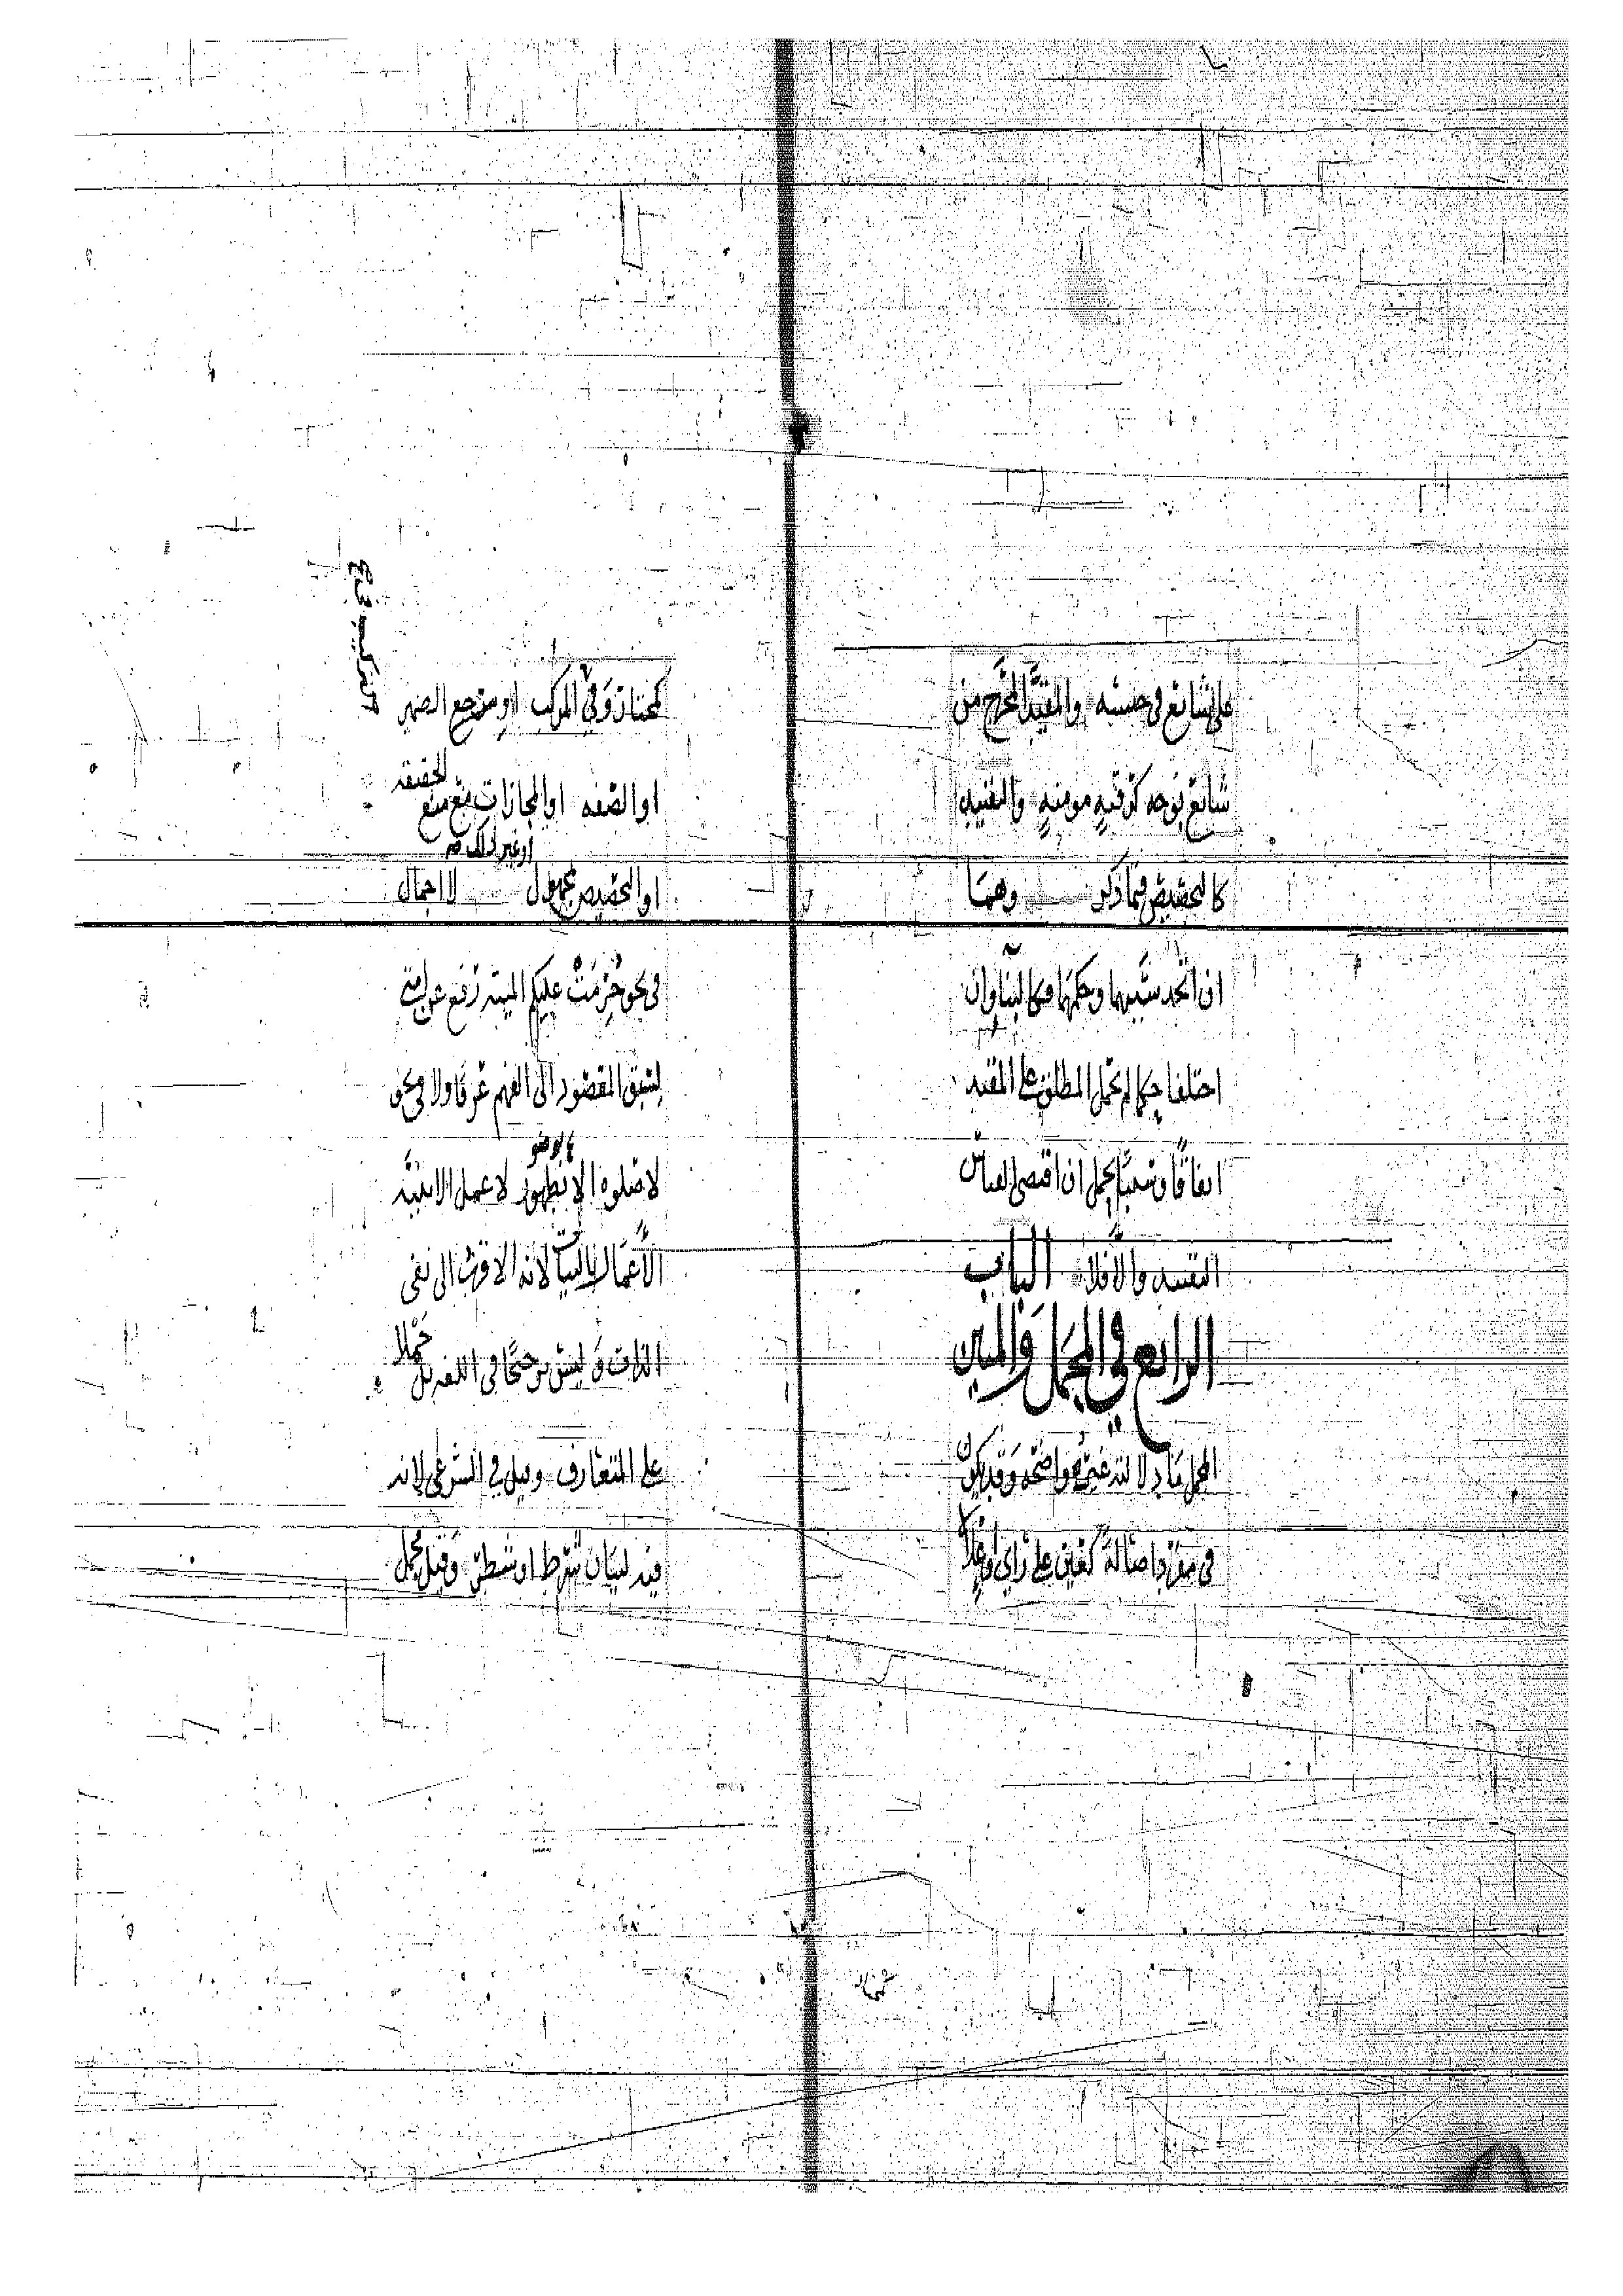 على شائع في جنسه والمقيد المخرج من
شائع بوجه كرقبة مومنة والتقييد
كالتخصيص فيما ذكر وهما
ان اتحد سببهما وحكمهما فكالبنا وان
اختلفا حكما لم يحمل المطلق على المقيد
اتفاقا وسببا يحمل ان اقتضى القياس
التقييد والا فلا الباب
الرابع في المجمل والمبين
المجمل ما دلالته غير واضحه وقد يكون
في مفرد اصالة كعين على راي او اعلالا
كمختار وفي المركب او مرجع الضمير
او الصفه او المجازات مع منع الحقيقه
او غير ذلك
او التخصيص بمجهول لا اجمال
في نحو حرمت عليكم الميتة رفع عن امتي
لسبق المقصود الى الفهم عرفا ولا في نحو
لا صلوة الا بطهور لا عمل الا بنية
الاعمال بالنيات لانه الاقرب الى نفي
الذات وليس ترجيحا في اللغه بل حملا
على المتعارف وقيل في الشرعي لانه
فيه لبيان شرط او شطر وقيل مجمل